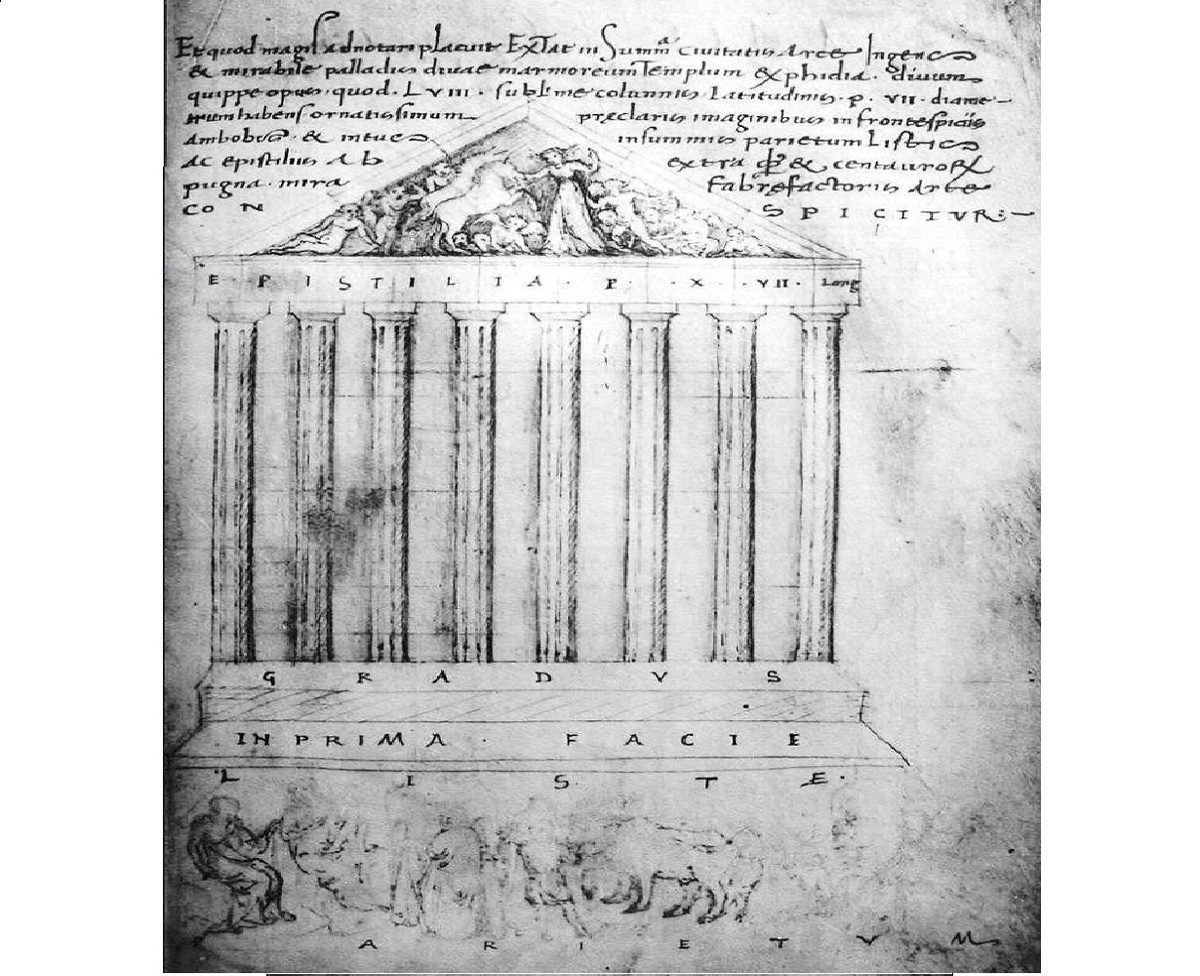 Et quod magis adnotari placuit ExTat in Summa civitatis Arce Ingens
& mirabile palladis divae marmoreum Templum & phidia. divum
quippe opus. quod. LVIII. sublime columnis Latitudinis. p. VII. diame-
trum habens ornatissimum preclaris imaginibus in frontespiciis
Ambobus & intus in summis parietum Listis
Ac epistilis Ab extra & centauror
pugna. mira Fabrefactoris Arte
CON SPICITVR:
EPISTILIA. P. X. VII. Long
GRADVS
IN PRIMA. FACIE
LISTE.
PARIETVM